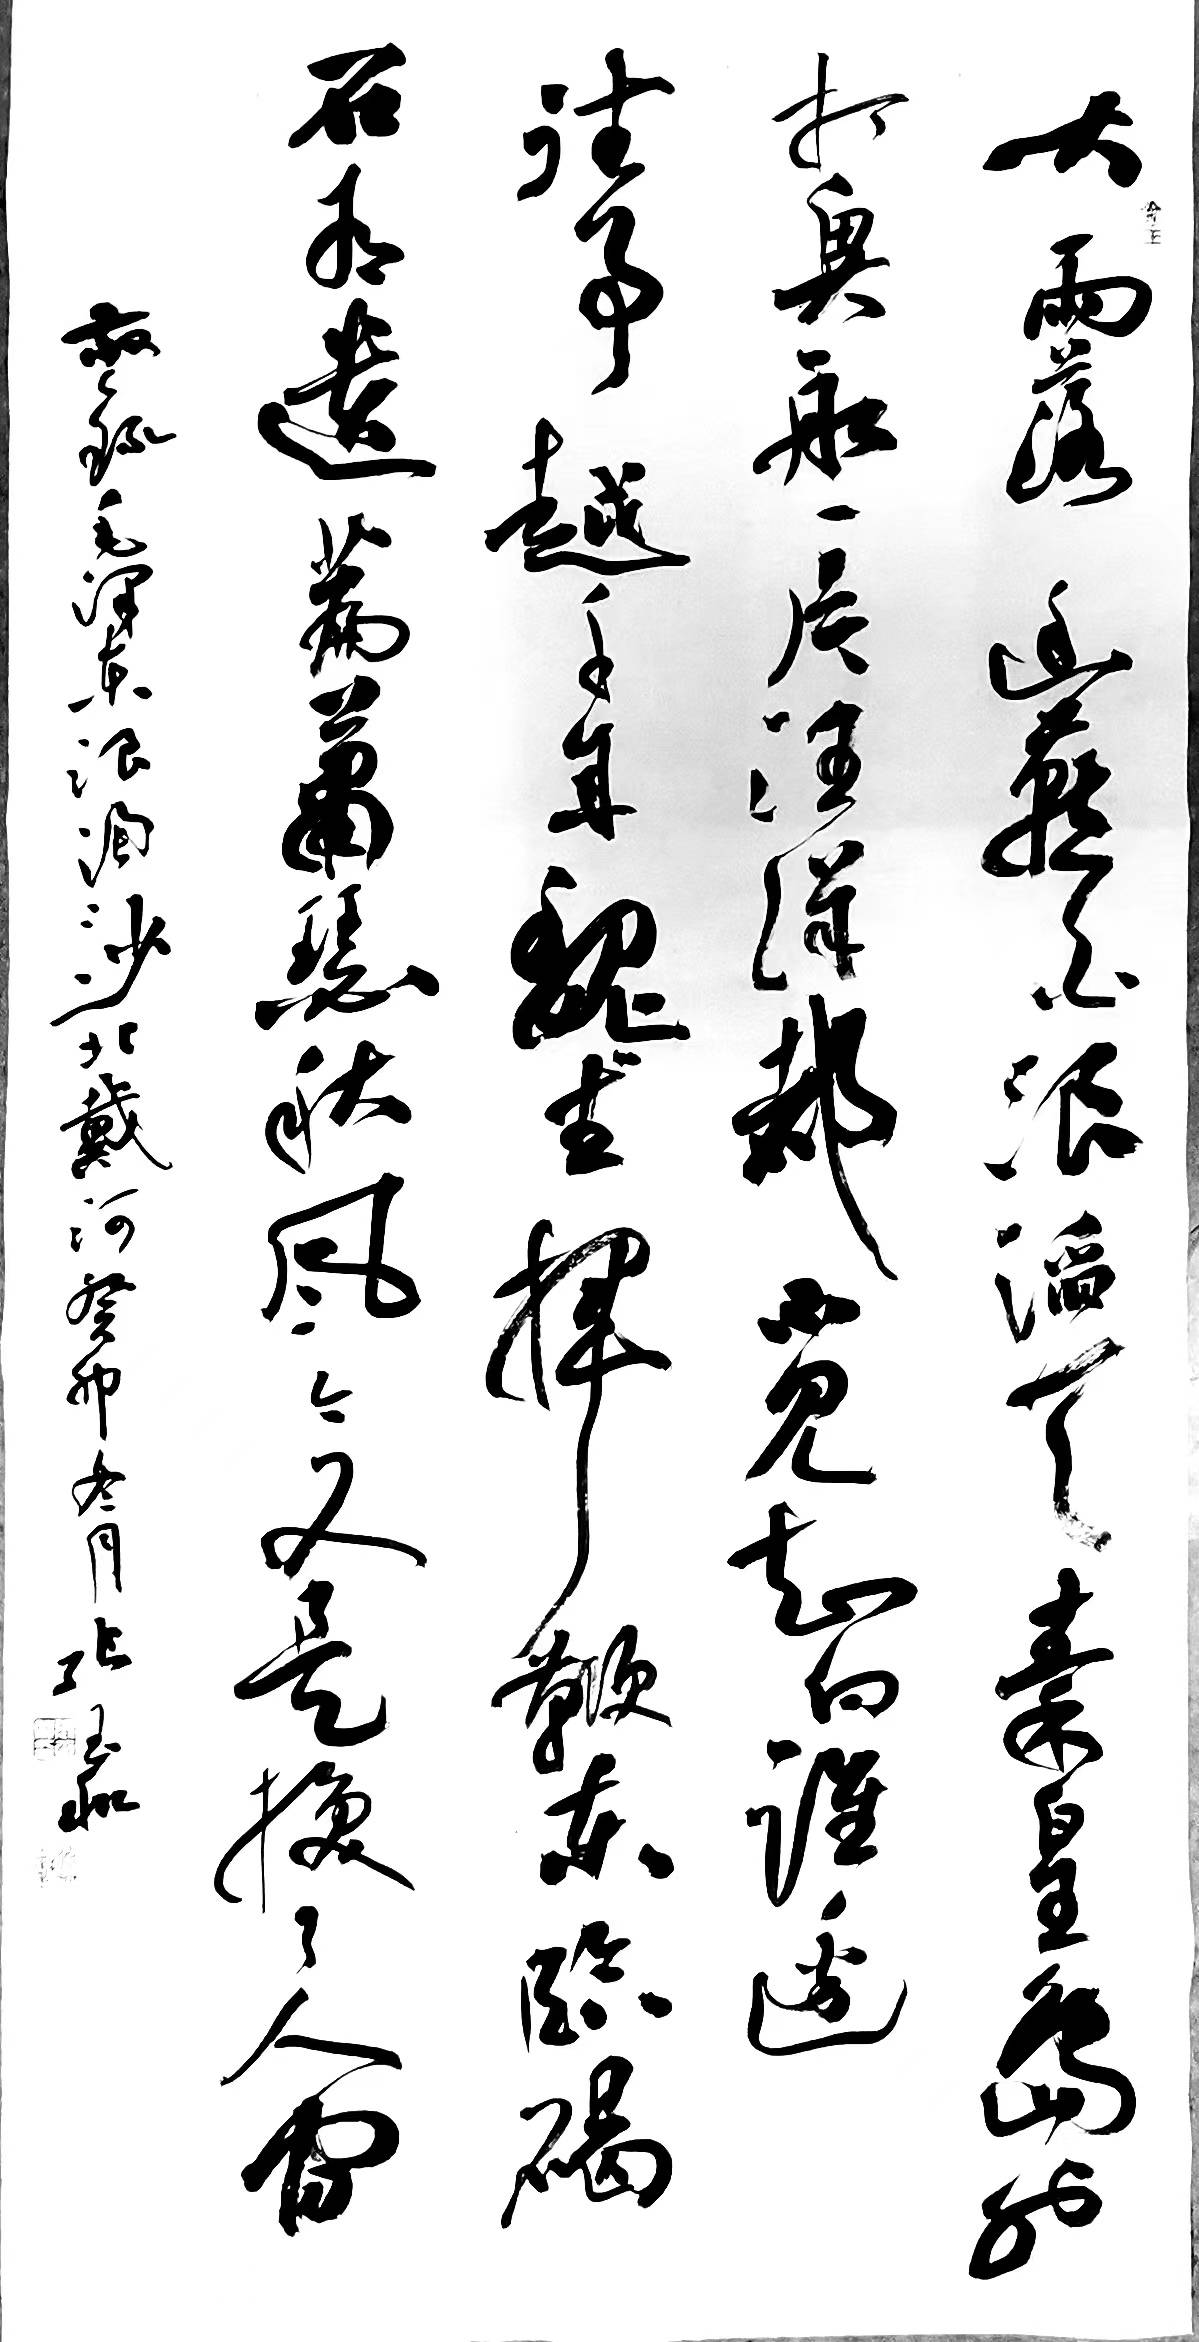 大雨落幽燕白浪滔天秦皇島外
打魚船一片汪洋都不見知向誰邊
往事越千年魏武揮鞭東臨碣
石有遺篇蕭瑟秋風今又是換了人間
敬錄毛澤東浪淘沙北戴河癸卯冬月張玉